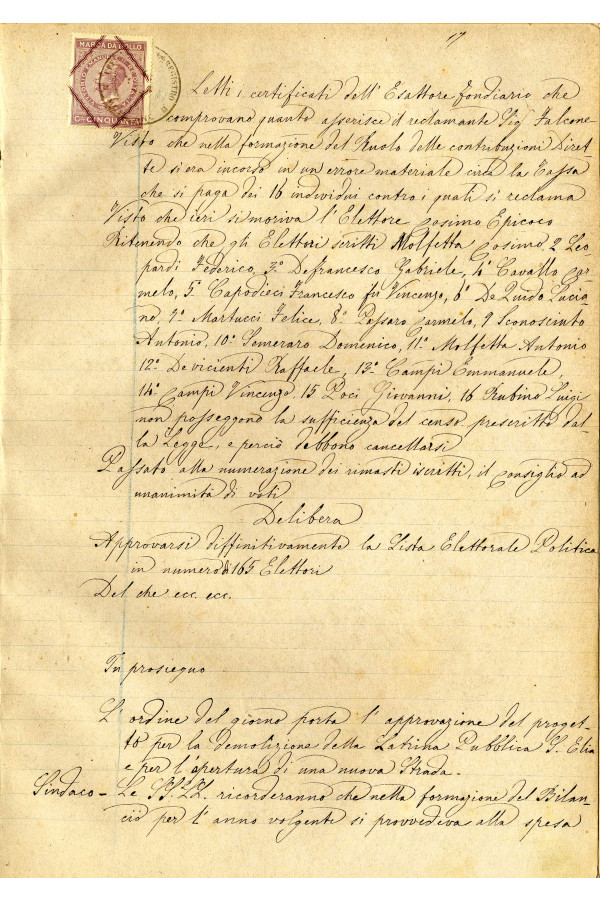 17
MARCA DA BOLLO
CINQUANTA
Letti i certificati dell'Esattore fondiario che
comprovano quanto asserisce il reclamante Sig Falcone
Visto che nella formazione del Ruolo delle contribuzioni Diret-
te si era incorso in un errore materiale circa la Tassa
che si paga dei 16 individui contro i quali si reclama
Visto che ieri si moriva l'Elettore Cosimo Epicoco
Ritenendo che gli Elettori scritti Molfetta Cosimo, 2 Leo-
pardi Federico, 3º Defrancesco Gabriele, 4º Cavallo Car-
melo, 5º Capodieci Francesco fu Vincenzo, 6º De Guido Lucia-
no, 7º Martucci Felice, 8º Passaro Carmelo, 9 Sconosciuto
Antonio, 10º Semeraro Domenico, 11º Molfetta Antonio
12º Devicienti Raffaele, 13º Campi Emmanuele,
14º Campi Vincenzo, 15 Poci Giovanni, 16 Rubino Luigi
non posseggono la sufficienza del censo prescritto dal
la Legge, e perciò debbono cancellarsi
Passato alla numerazione dei rimasti iscritti, il Consiglio ad
unanimità di voti
Delibera
Approvarsi diffinitivamente la Lista Elettorale Politica
in numero di 165 Elettori
Del che ecc. ecc.
In prosieguo
L'ordine del giorno porta l'approvazione del proget-
to per la demolizione della Latrina Pubblica S. Elia
e per l'apertura di una nuova Strada.
Sindaco - Le SS.LL. ricorderanno che nella formazione del Bilan-
cio per l'anno volgente si provvediva alla spesa